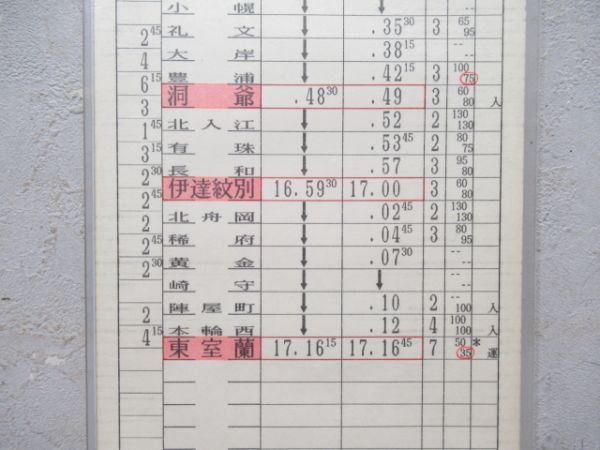 小幌 ↓ ↓ -- --
2⁴⁵ 礼文 ↓ .35³⁰ 3 65 95
4 大岸 ↓ .38¹⁵ -- --
6¹⁵ 豊浦 ↓ .42¹⁵ 3 100 75
3 洞爺 .48³⁰ .49 3 60 80 入
1⁴⁵ 北入江 ↓ .52 2 130 130
3¹⁵ 有珠 ↓ .53⁴⁵ 2 80 75
2³⁰ 長和 ↓ .57 3 95 80
2⁴⁵ 伊達紋別 16.59³⁰ 17.00 3 60 80
2 北舟岡 ↓ .02⁴⁵ 2 130 130
2⁴⁵ 稀府 ↓ .04⁴⁵ 3 80 95
2³⁰ 黄金 ↓ .07³⁰ -- --
崎守 ↓ ↓ -- --
2 陣屋町 ↓ .10 2 -- 100 入
4¹⁵ 本輪西 ↓ .12 4 100 100 入
東室蘭 17.16¹⁵ 17.16⁴⁵ 7 50 35 * 運